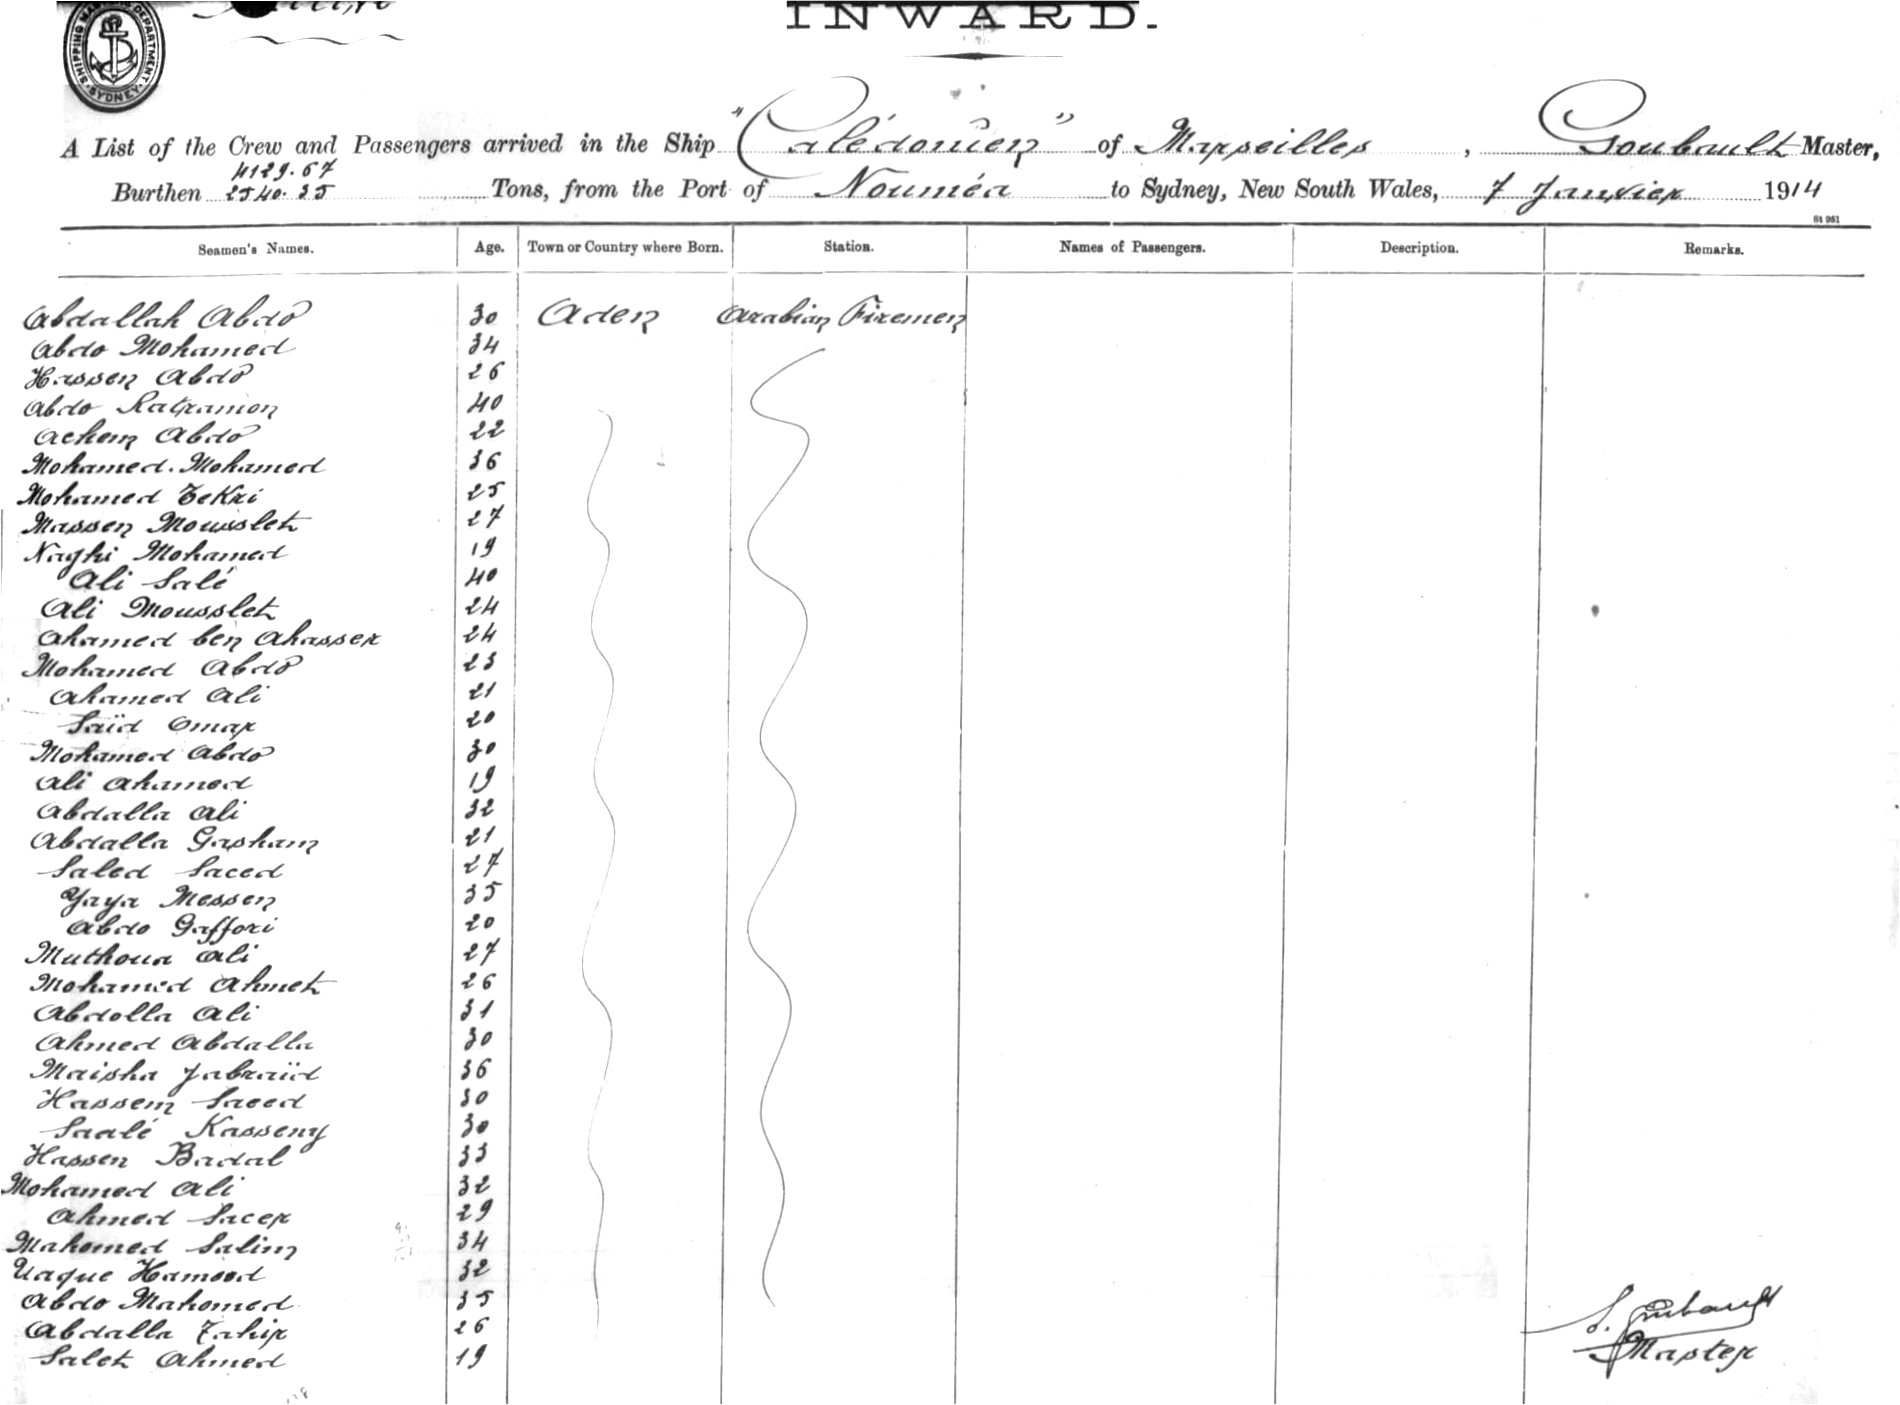 INWARD.
SHIPPING MASTER'S DEPARTMENT SYDNEY
A List of the Crew and Passengers arrived in the Ship "Calédonien" of Marseilles, Goubault Master,
4129.67
Burthen 2540.35 Tons, from the Port of Nouméa to Sydney, New South Wales, 7 Janvier 1914
St 961
Seamen's Names. Age. Town or Country where Born. Station. Names of Passengers. Description. Remarks.
Abdallah Abdo 30 Aden Arabian Firemen
Abdo Mohamed 34
Hassen Abdo 26
Abdo Ratramon 40
Achem Abdo 22
Mohamed. Mohamed 36
Mohamed Tekri 25
Massen Mousslet 27
Naghi Mohamed 19
Ali Salé 40
Ali Mousslet 24
Ahamed ben Ahasser 24
Mohamed Abdo 23
Ahamed Ali 21
Saïd Omar 20
Mohamed Abdo 30
Ali Ahamed 19
Abdalla Ali 32
Abdalla Gasham 21
Saled Saeed 27
Yaya Messen 35
Abdo Gaffori 20
Muthona Ali 27
Mohamed Ahmet 26
Abdolla Ali 31
Ahmed Abdalla 30
Maisha Jabraïd 36
Hassem Saeed 30
Saalé Kasseny 30
Hassen Badal 33
Mohamed Ali 32
Ahmed Sacer 29
Mahomed Salim 34
Uaque Hamood 32
Abdo Mahomed 35
Abdalla Tahir 26
Saleh Ahmed 19
S. Goubault
Master